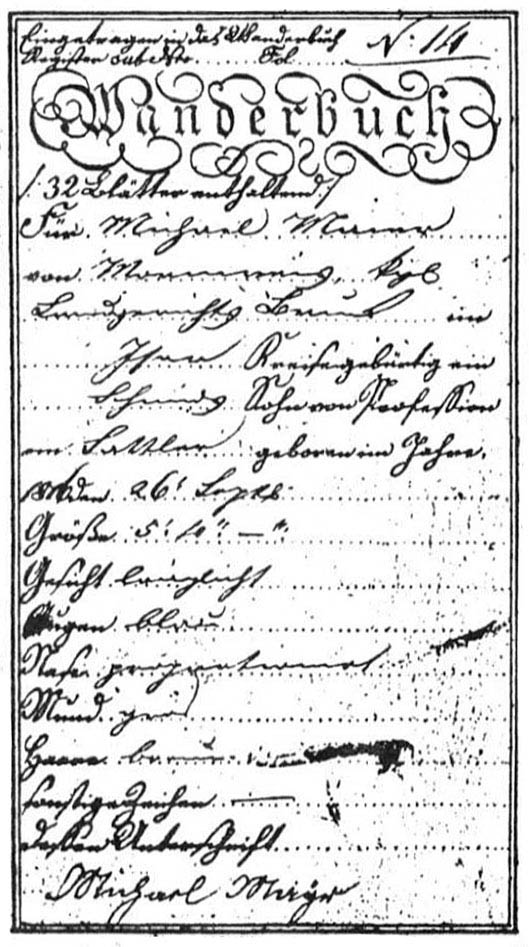 Eingetragen in das Wanderbuch
Register sub Nro. Fol.
N. 14
Wanderbuch
/: 32 Blätter enthaltend :/
Für Michael Maier
von Kgl
Landgerichts Bruck im
Isar Kreise gebürtig ein
Schmids Sohn von Profession
ein Sattler geboren im Jahre
den 26t Septb
Größe 5' 10" — "'
Gesicht länglicht
Augen blau
Nase proportionirt
Mund
Haare braun
sonstige Zeichen —
dessen Unterschrift
Michael Mayr